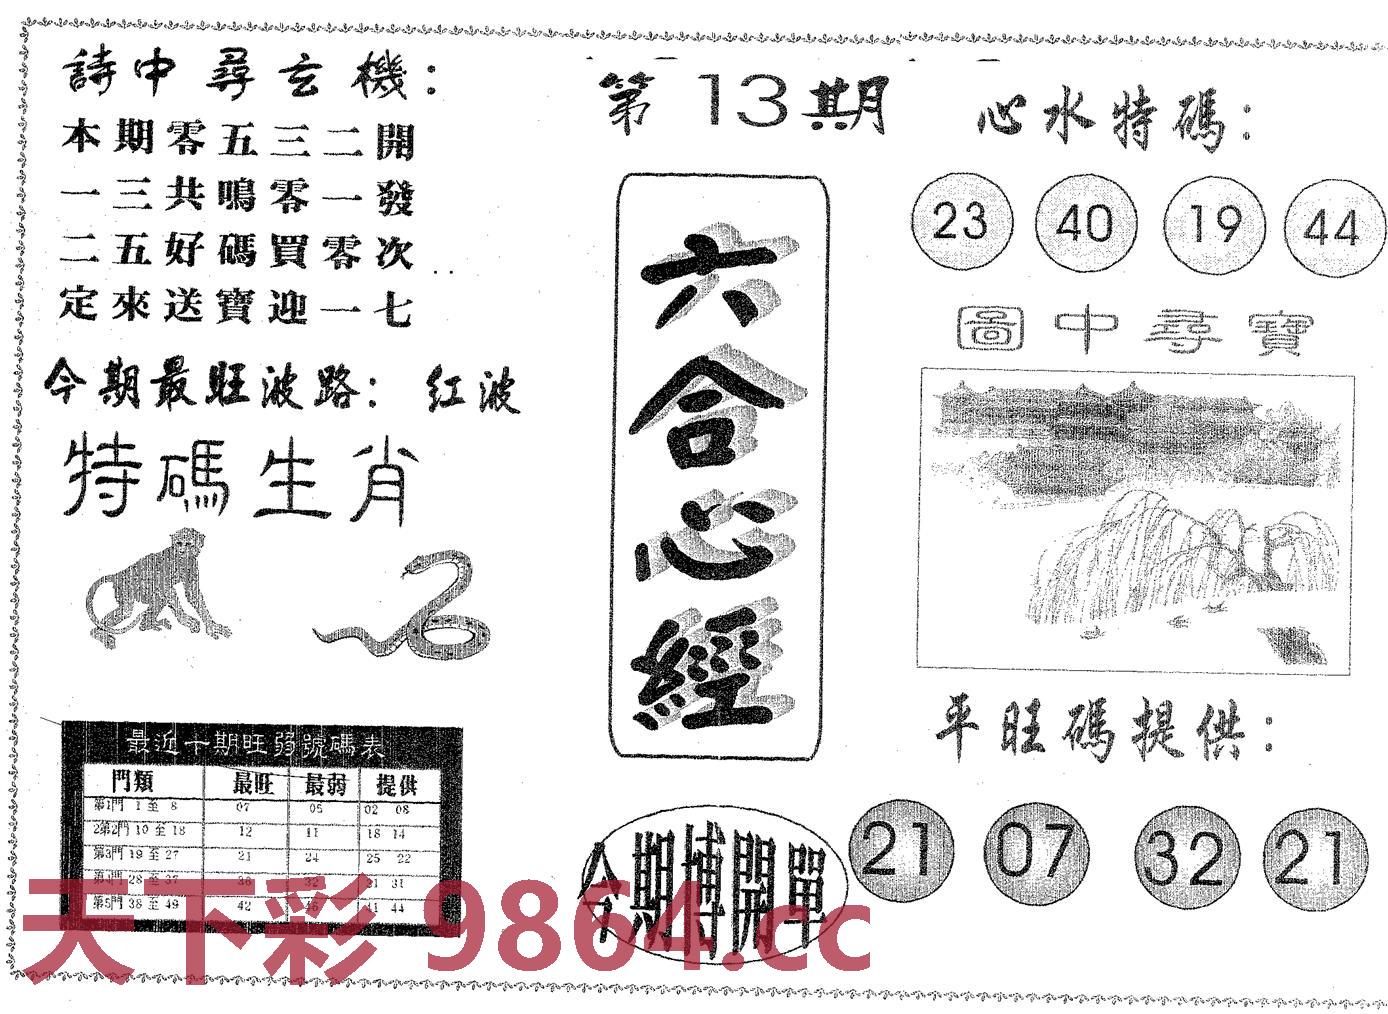 詩中尋玄機：
本期零五三二開
一三共鳴零一發
二五好碼買零次
定來送寶迎一七
今期最旺波路： 红波
特碼生肖
最近十期旺弱號碼表
門類 最旺 最弱 提供
第1門 1 至 8 07 05 02 08
2第2門 10 至 18 12 11 18 14
第3門 19 至 27 21 24 25 22
第4門 28 至 37 36 32 31
第5門 38 至 49 42 41 44
第13期
六合心經
今期博開單
心水特碼：
23 40 19 44
圖中尋寶
平旺碼提供：
21 07 32 21
天下彩 9864.cc